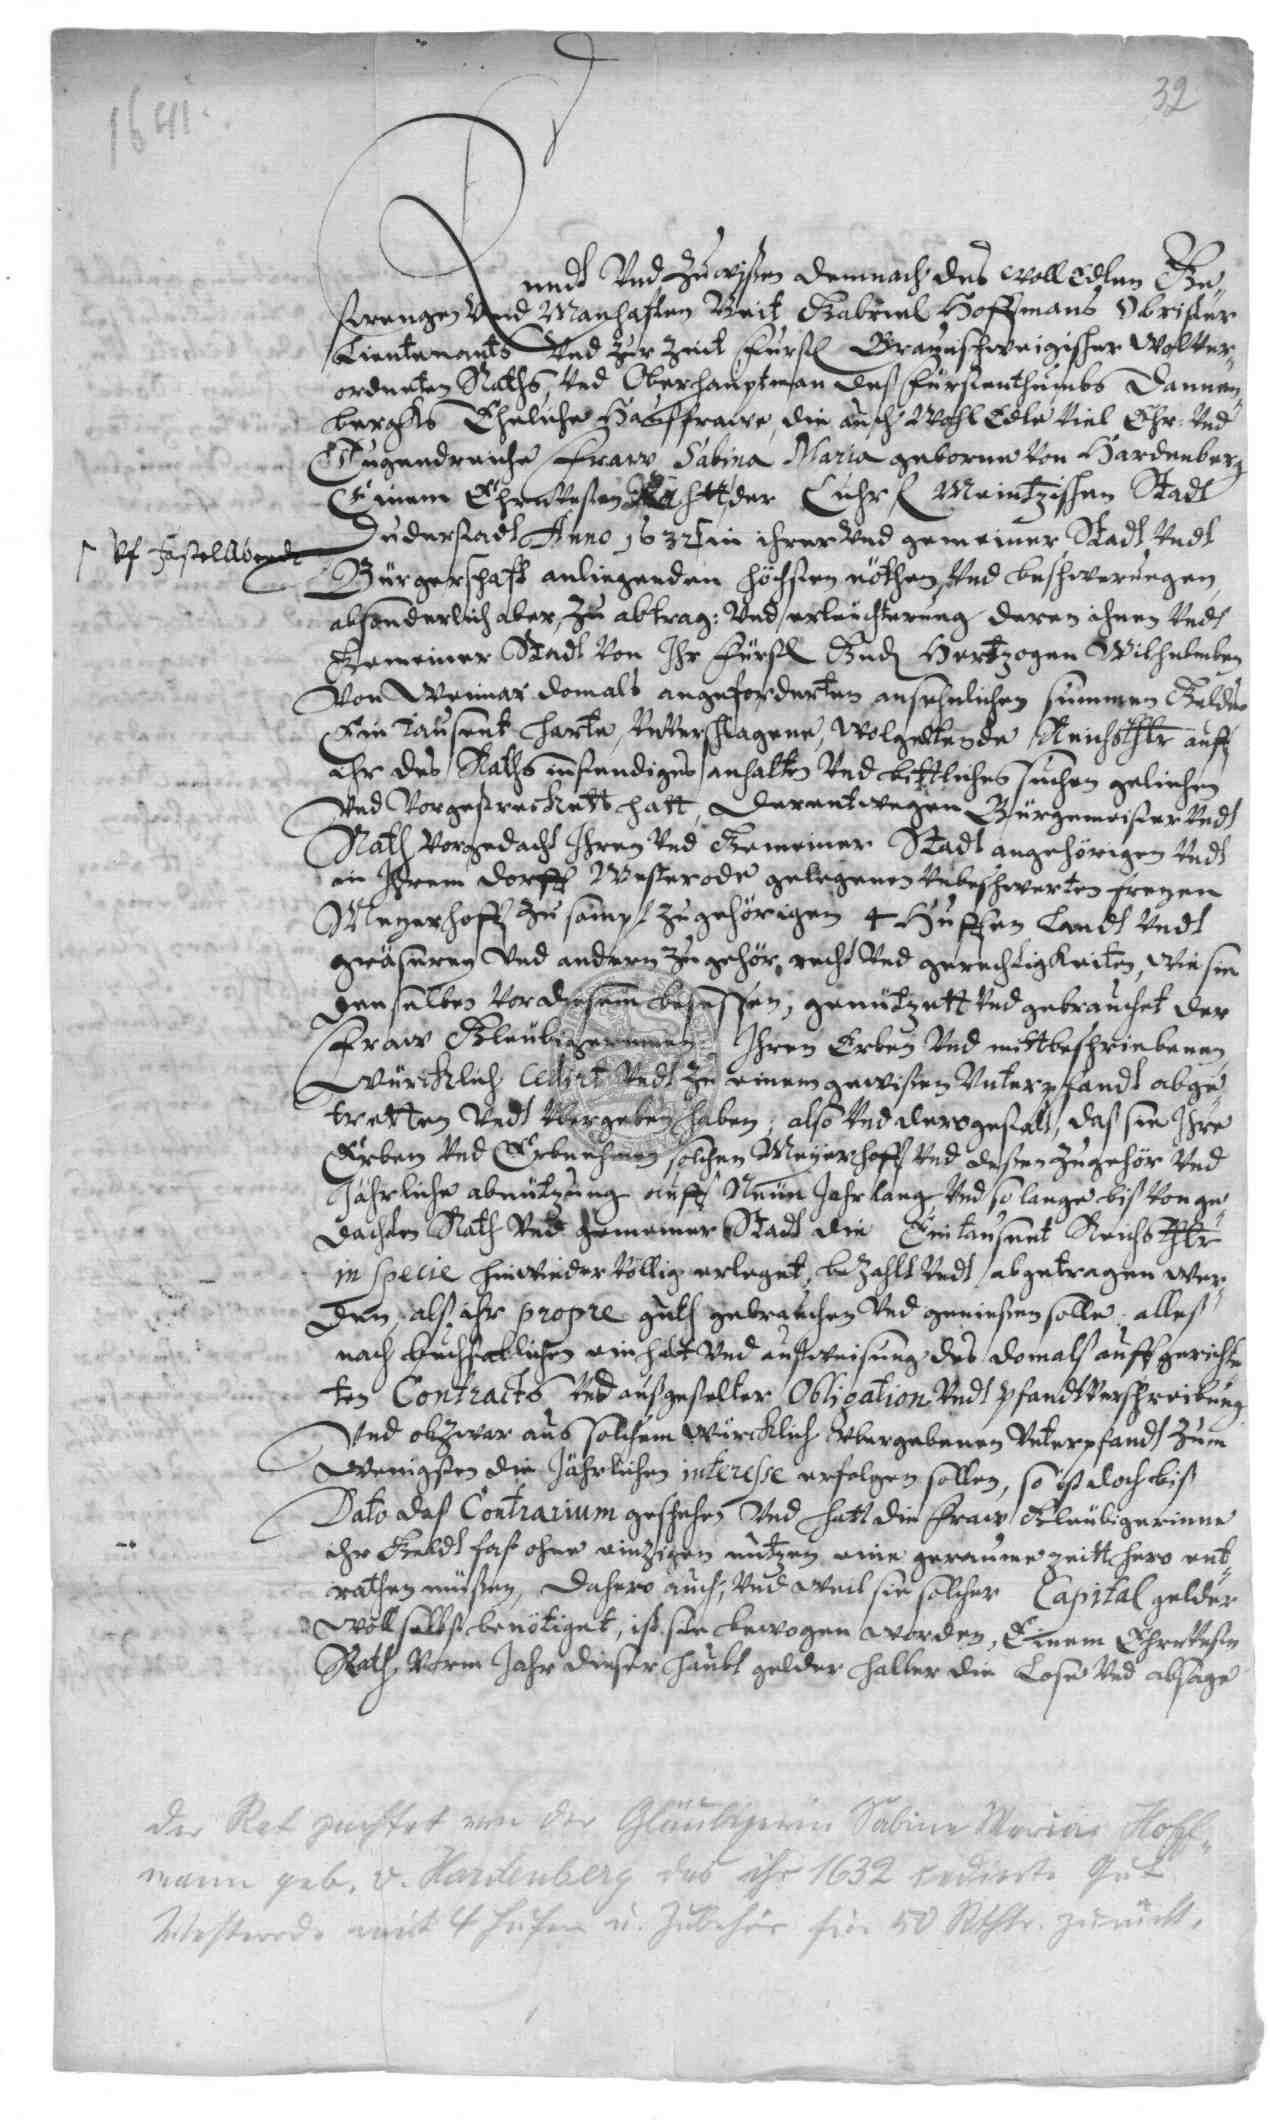 32
1641.
Kundt Vnd Zuwißen demnach des Woll Edlen Ge„
strengen Vnd Manhafften Veit Gabriel Hoffmans Obrister
Lieutenants Vnd Zur Zeit Fürstl Braunschweigischer Wolver„
ordneten Raths, Vnd Oberhauptman deß fürstenthumbs Dannen„
berghs Eheliche Haußfrawe, die auch Wohl Edle Viel Ehr: Vnd
Tugendreiche Fraw Sabina Maria geborne Von Hardenberg
Einem Ehrnvesten Rahtt der Churf Meintzischen Stadt
Duderstadt Anno 1632 in ihrer Vnd gemeiner Stadt Vndt
Vf Fastellabendt
Bürgerschafft anliegenden höchsten nöthen, Vnd beschwerungen,
absonderlich aber, Zu abtrag: Vnd erleichterung deren ihnen Vndt
Gemeiner Stadt Von Ihr Fürstl Gnd Hertzogen Wilhelmben
Von Weimar domals angeforderten ansehnlichen summen Geldes
Ein Tausent harte, Vnverschlagene, Wolgeltende Reichsthlr auff
ihr des Raths instendiges anhalten Vnd bittliches suchen geliehen
Vnd Vorgestreckett hatt, Derentwegen Bürgemeister Vndt
Rath Vorgedacht Ihren Vnd Gemeiner Stadt angehörigen Vndt
in Ihrem dorff Westerode gelegenen Vnbeschwerten freyen
Meyerhoff Zu sampt Zugehörigen 4 Huffen Landt Vndt
gräsereyen Vnd andern Zugehör, recht Vnd gerechtigkeiten, wie sie
denselben Vor diesem besessen, genützett Vnd gebrauchet der
Fraw Gleubigerinnen Ihren Erben Vnd mittbeschriebenen
Würcklich Cedirt Vndt Zu einem gewißen Vnterpfandt abge„
tretten Vndt Vbergeben haben, also Vnd dergestalt, daß sie Ihre
Erben Vnd Erbnehmen solchen Meyerhoff Vnd deßen Zugehör Vnd
Jährliche abnützung auff Neun Jahr lang Vnd so lange biß Von ge„
dachten Rath Vnd gemeiner Stadt die Eintausent Reichsthlr
in specie hinwieder Völlig erleget, bezahlt Vndt abgetragen wer„
den, alß ihr propre guth gebrauchen Vnd genießen solle, alles
nach buchstablichen einhalt Vnd außweisung des domalß auffgerichte„
ten Contracts Vnd außgestelter Obligation Vndt pfandtverschreibung
Vnd obzwar aus solchem würcklich Vbergebenen Vnterpfandt Zum
wenigsten die Jährlichen interesse erfolgen sollen, so ist doch biß
Dato daß Contrarium geschehen Vnd hatt die Fraw Gleubigerinne
ihr Geldt fast ohne einzigen nutzen eine geraume zeitt hero ent„
rathen müßen, Dahero auch, Vnd weil sie solcher Capital gelder
woll selbst benötiget, ist sie bewogen worden, Einem Ehrnvesten
Rath, Vorm Jahr dieser haubt gelder halber die Lose Vnd absage
Der Rat pachtet von der Gläubigerin Sabine Maria Hoff„
mann geb. v. Hardenberg das ihr 1632 cedierte Gut
Westerode mit 4 Hufen u. Zubehör für 50 Rthlr. zurück.